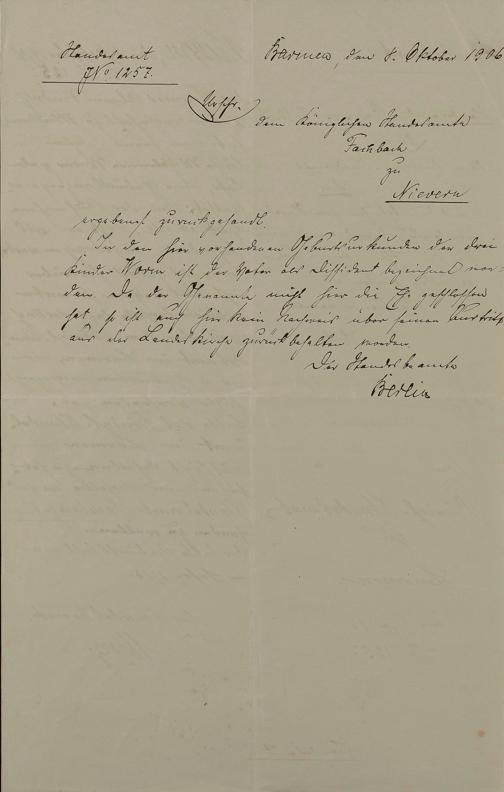 Standesamt
JNo 1257.
Barmen, den 8. Oktober 1906
Urschr.
dem Königlichen Standesamte
Fachbach
zu
Nievern
ergebenst zurückgesandt.
In den hier vorhandenen Geburtsurkunden der drei
Kinder Worm ist der Vater als Dissident bezeichnet wor-
den. Da der Genannte nicht hier die Ehe geschlossen
hat, so ist auch hier kein Nachweis über seinen Austritt
aus der Landeskirche zurückbehalten worden.
Der Standesbeamte